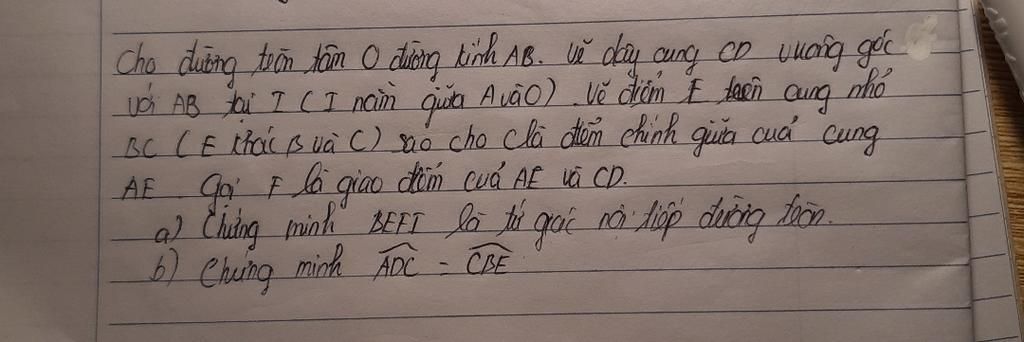 Cho đường tròn tâm O đường kính AB. Vẽ dây cung CD vuông góc
với AB tại I (I nằm giữa A và O). Vẽ điểm E trên cung nhỏ
BC (E khác B và C) sao cho C là điểm chính giữa cuả cung
AE. Gọi F là giao điểm cuả AE và CD.
a) Chứng minh BEFI là tứ giác nội tiếp đường tròn.
b) Chứng minh ADC = CBE